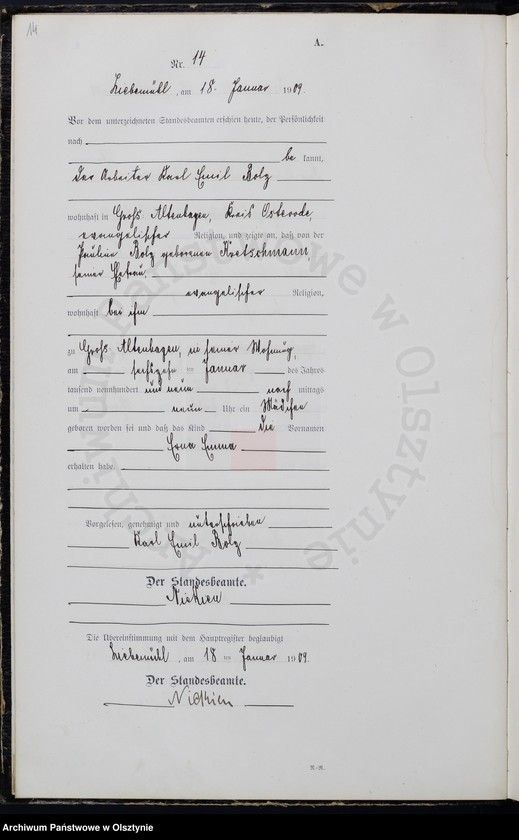 14
A.
Nr. 14
Liebemühl, am 18. Januar 1909.
Vor dem unterzeichneten Standesbeamten erschien heute, der Persönlichkeit
nach
be kannt,
der Arbeiter Karl Emil Bolz
wohnhaft in Groß Altenhagen, Kreis Osterode,
evangelischer Religion, und zeigte an, daß von der
Pauline Bolz geborenen Kretschmann,
seiner Ehefrau,
evangelischer Religion,
wohnhaft bei ihm
zu Groß Altenhagen, in seiner Wohnung,
am sechszehn ten Januar des Jahres
tausend neunhundert und neun nach mittags
um neun Uhr ein Mädchen
geboren worden sei und daß das Kind die Vornamen
Erna Emma
erhalten habe.
Vorgelesen, genehmigt und unterschrieben
Karl Emil Bolz
Der Standesbeamte.
Die Übereinstimmung mit dem Hauptregister beglaubigt
Liebemühl, am 18 ten Januar 1909.
Der Standesbeamte.
R.-R.
Archiwum Państwowe w Olsztynie
Archiwum Państwowe w Olsztynie *